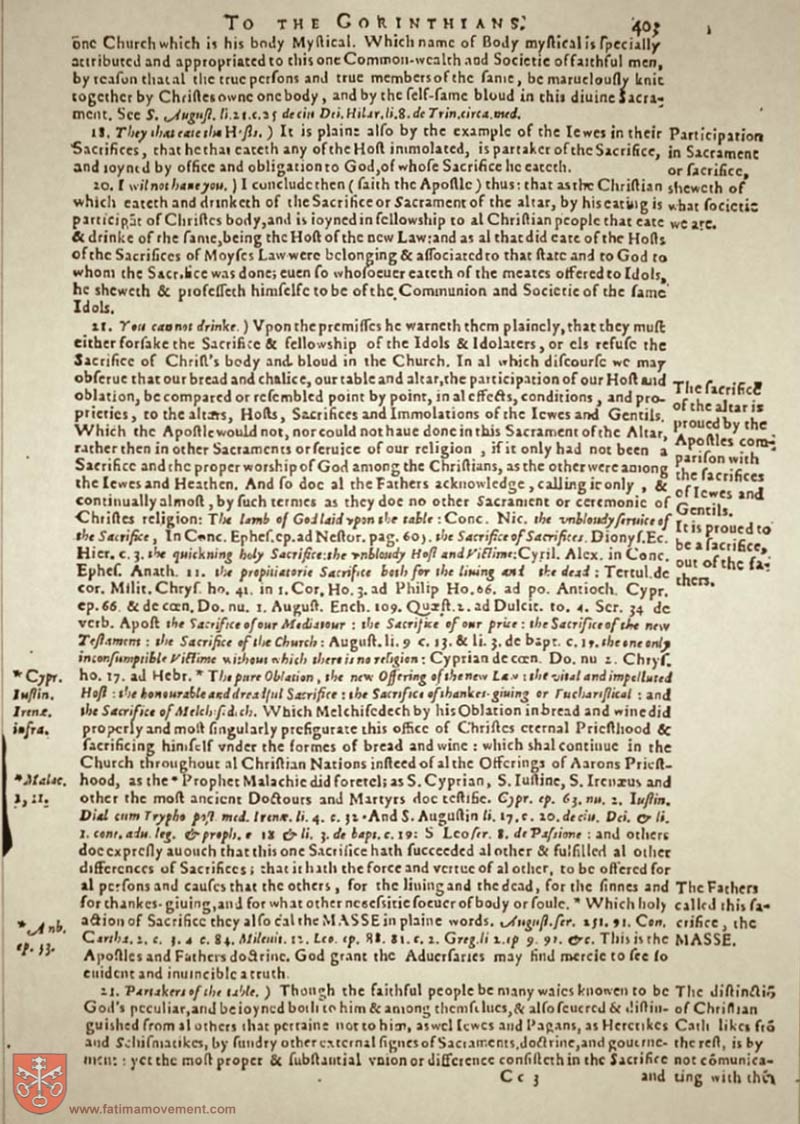 TO THE CORINTHIANS. 403
one Church which is his body Myſtical. Which name of Body myſtical is ſpecially
attributed and appropriated to this one Common-wealth and Societie of faithful men,
by reaſon that al the true perſons and true members of the ſame, be maruelouſly knit
together by Chriſtes owne one body, and by the ſelf-ſame bloud in this diuine Sacra-
ment. See S. Auguſt. li. 21. c. 25 de ciu Dei. Hilar. li. 8. de Trin. circa. med.
18. They that eate the Hoſts. ) It is plaine alſo by the example of the Iewes in their
Sacrifices, that he that eateth any of the Hoſt immolated, is partaker of the Sacrifice,
and ioyned by office and obligation to God, of whoſe Sacrifice he eateth.
Participation
in Sacrament
or ſacrifice,
ſheweth of
what ſocietie
we are.
20. I wil not haue you. ) I conclude then ( ſaith the Apoſtle ) thus: that as the Chriſtian
which eateth and drinketh of the Sacrifice or Sacrament of the altar, by his eating is
participāt of Chriſtes body, and is ioyned in fellowſhip to al Chriſtian people that eate
& drinke of the ſame, being the Hoſt of the new Law: and as al that did eate of the Hoſts
of the Sacrifices of Moyſes Law were belonging & aſſociated to that ſtate and to God to
whom the Sacrifice was done; euen ſo whoſoeuer eateth of the meates offered to Idols,
he ſheweth & profeſſeth himſelfe to be of the Communion and Societie of the ſame
Idols.
21. You cannot drinke. ) Vpon the premiſſes he warneth them plainely, that they muſt
either forſake the Sacrifice & fellowſhip of the Idols & Idolaters, or els refuſe the
Sacrifice of Chriſt's body and bloud in the Church. In al which diſcourſe we may
obſerue that our bread and chalice, our table and altar, the participation of our Hoſt and
oblation, be compared or reſembled point by point, in al effects, conditions, and pro-
prieties, to the altars, Hoſts, Sacrifices and Immolations of the Iewes and Gentils.
Which the Apoſtle would not, nor could not haue done in this Sacrament of the Altar,
rather then in other Sacraments or ſeruice of our religion , if it only had not been a
Sacrifice and the proper worſhip of God among the Chriſtians, as the other were among
the Iewes and Heathen. And ſo doe al the Fathers acknowledge, calling it only , &
continually almoſt, by ſuch termes as they doe no other Sacrament or ceremonie of
Chriſtes religion: The lamb of God laid vpon the table : Conc. Nic. the vnbloudy ſeruice of
the Sacrifice, In Conc. Epheſ. ep. ad Neſtor. pag. 605. the Sacrifice of Sacrifices. Dionyſ. Ec.
Hier. c. 3. the quickning holy Sacrifice: the vnbloudy Hoſt and Victime: Cyril. Alex. in Conc.
Epheſ. Anath. 11. the propitiatorie Sacrifice both for the liuing and the dead : Tertul. de
cor. Milit. Chryſ. ho. 41. in 1. Cor. Ho. 3. ad Philip Ho. 66. ad po. Antioch. Cypr.
ep. 66. & de cœn. Do. nu. 1. Auguſt. Ench. 109. Quæſt. 2. ad Dulcit. to. 4. Ser. 34 de
verb. Apoſt the Sacrifice of our Mediatour : the Sacrifice of our price : the Sacrifice of the new
Teſtament : the Sacrifice of the Church : Auguſt. li. 9 c. 13. & li. 3. de bapt. c. 19. the one only
inconſumptible Victime without which there is no religion : Cyprian de cœn. Do. nu 2. Chryſ.
ho. 17. ad Hebr. * The pure Oblation, the new Offering of the new Law : the vital and impolluted
Hoſt : the honourable and dreadful Sacrifice : the Sacrifice of thankes-giuing or Euchariſtical : and
the Sacrifice of Melchiſedech. Which Melchiſedech by his Oblation in bread and wine did
properly and moſt ſingularly prefigurate this office of Chriſtes eternal Prieſthood &
ſacrificing himſelf vnder the formes of bread and wine : which shal continue in the
Church throughout al Chriſtian Nations inſteed of al the Offerings of Aarons Prieſt-
hood, as the * Prophet Malachie did foretel; as S. Cyprian, S. Iuſtine, S. Irenæus and
other the moſt ancient Doctours and Martyrs doe teſtifie. Cypr. ep. 63. nu. 2. Iuſtin.
Dial cum Trypho poſt med. Irenæ. li. 4. c. 32. And S. Auguſtin li. 17. c. 20. de ciu. Dei. & li.
1. cont. adu. leg. & proph. c 18 & li. 3. de bapt. c. 19: S Leo ſer. 8. de Paſſione : and others
doe expreſly auouch that this one Sacrifice hath ſucceeded al other & fulfilled al other
differences of Sacrifices; that it hath the force and vertue of al other, to be offered for
al perſons and cauſes that the others , for the liuing and the dead, for the ſinnes and
for thankes-giuing, and for what other neceſſitie ſoeuer of body or ſoule. * Which holy
action of Sacrifice they alſo cal the MASSE in plaine words. Auguſt. ſer. 251. 91. Con.
Cartha. 2. c. 3. 4 c. 84. Mileuit. 12. Leo. ep. 88. 81. c. 2. Greg. li 2. ep 9. 91. &c. This is the
Apoſtles and Fathers doctrine. God grant the Aduerſaries may find mercie to ſee ſo
euident and inuincible a truth.
The ſacrifice
of the altar is
proued by the
Apoſtles com-
pariſon with
the ſacrifices
of Iewes and
Gentils.
It is proued to
be a ſacrifice,
out of the fa-
thers.
* Cypr.
Iuſtin.
Irenæ.
infra.
* Malac.
1, 11.
The Fathers
called this ſa-
crifice, the
MASSE.
* Amb.
ep. 33.
21. Partakers of the table. ) Though the faithful people be many waies knowen to be
God's peculiar, and be ioyned both to him & among themſelues, & alſo ſeuered & diſtin-
guiſhed from al others that pertaine not to him, aswel Iewes and Pagans, as Heretikes
and Schiſmatikes, by ſundry other external ſignes of Sacraments, doctrine, and gouerne-
ment : yet the moſt proper & ſubſtantial vnion or difference conſiſteth in the Sacrifice
The diſtinctiō
of Chriſtian
Catholikes frō
the reſt, is by
not cōmunica-
ting with thē
Cc 3 and
www.fatimamovement.com